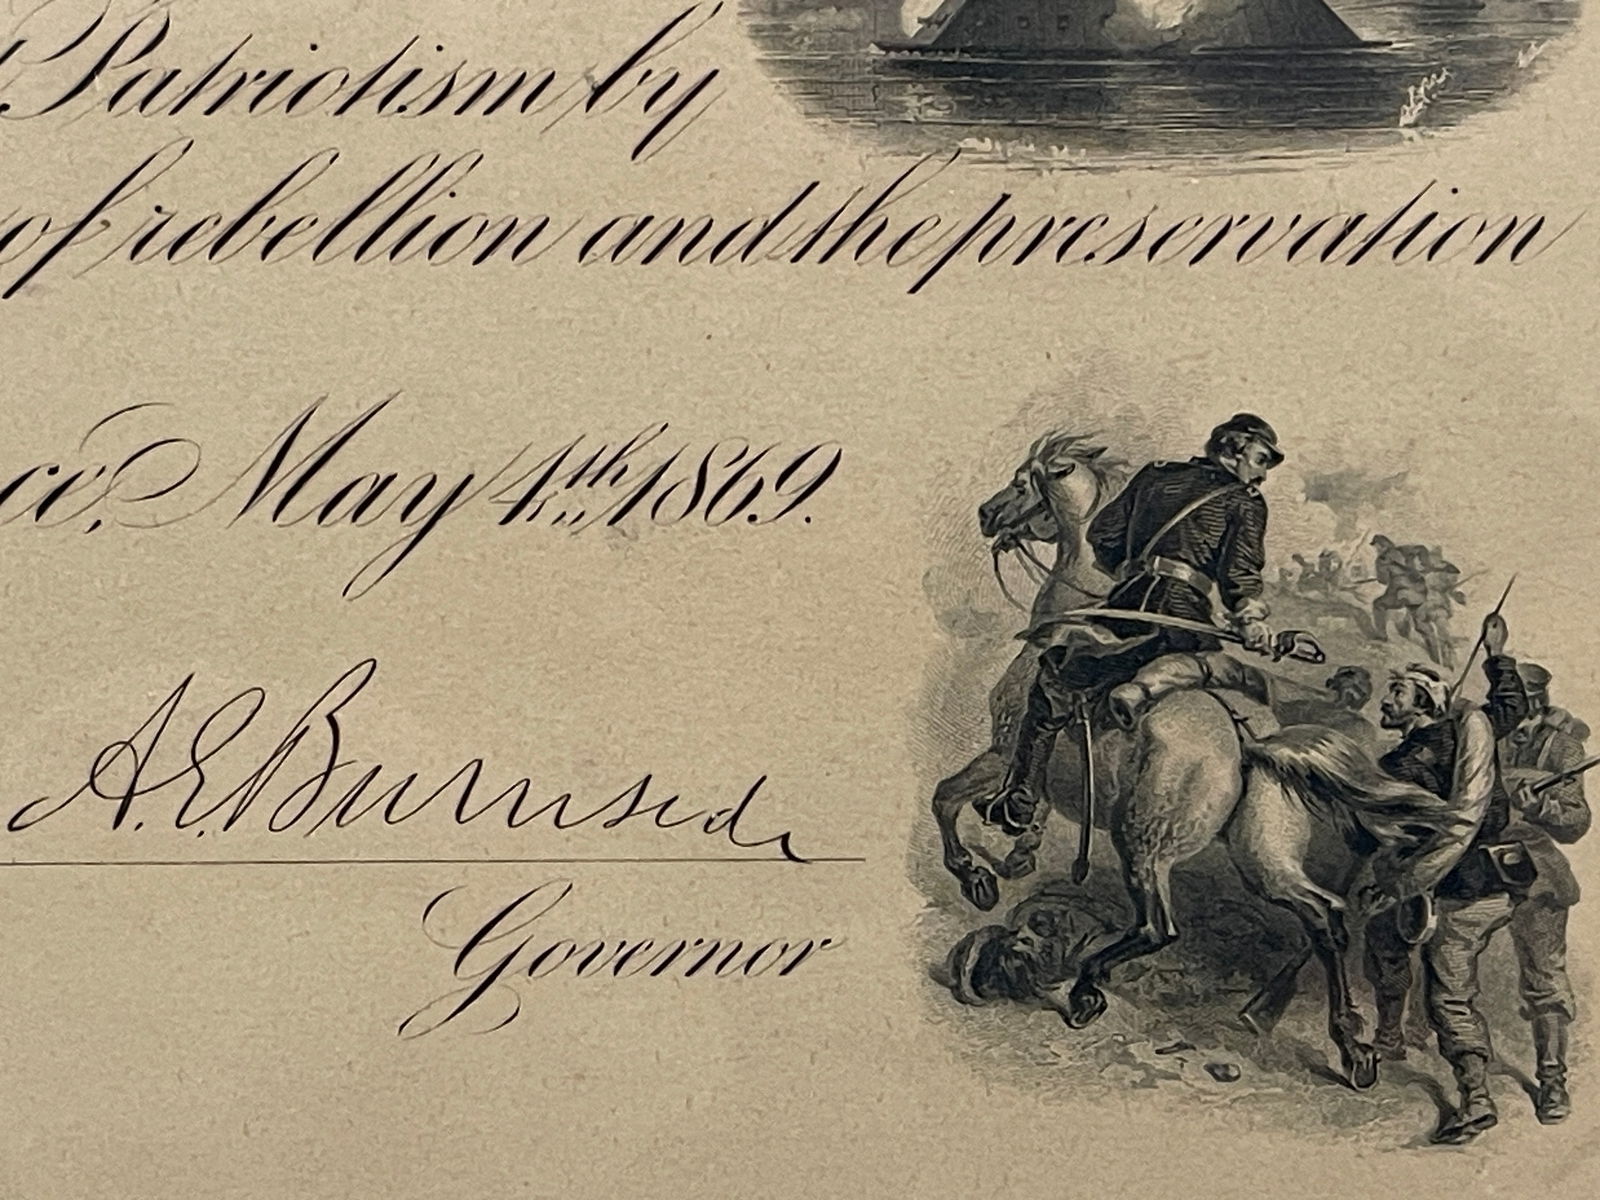 Patriotism by
of rebellion and the preservation
ce, May 4th 1869.
A. E. Burnside
Governor